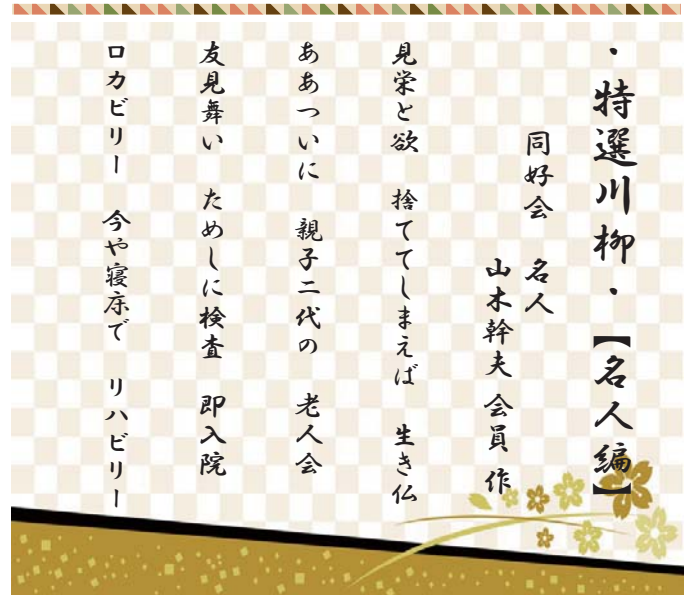 ・特選川柳・【名人編】
同好会　名人
山木幹夫 会員 作
見栄と欲　捨ててしまえば　生き仏
ああついに　親子二代の　老人会
友見舞い　ためしに検査　即入院
ロカビリー　今や寝床で　リハビリー